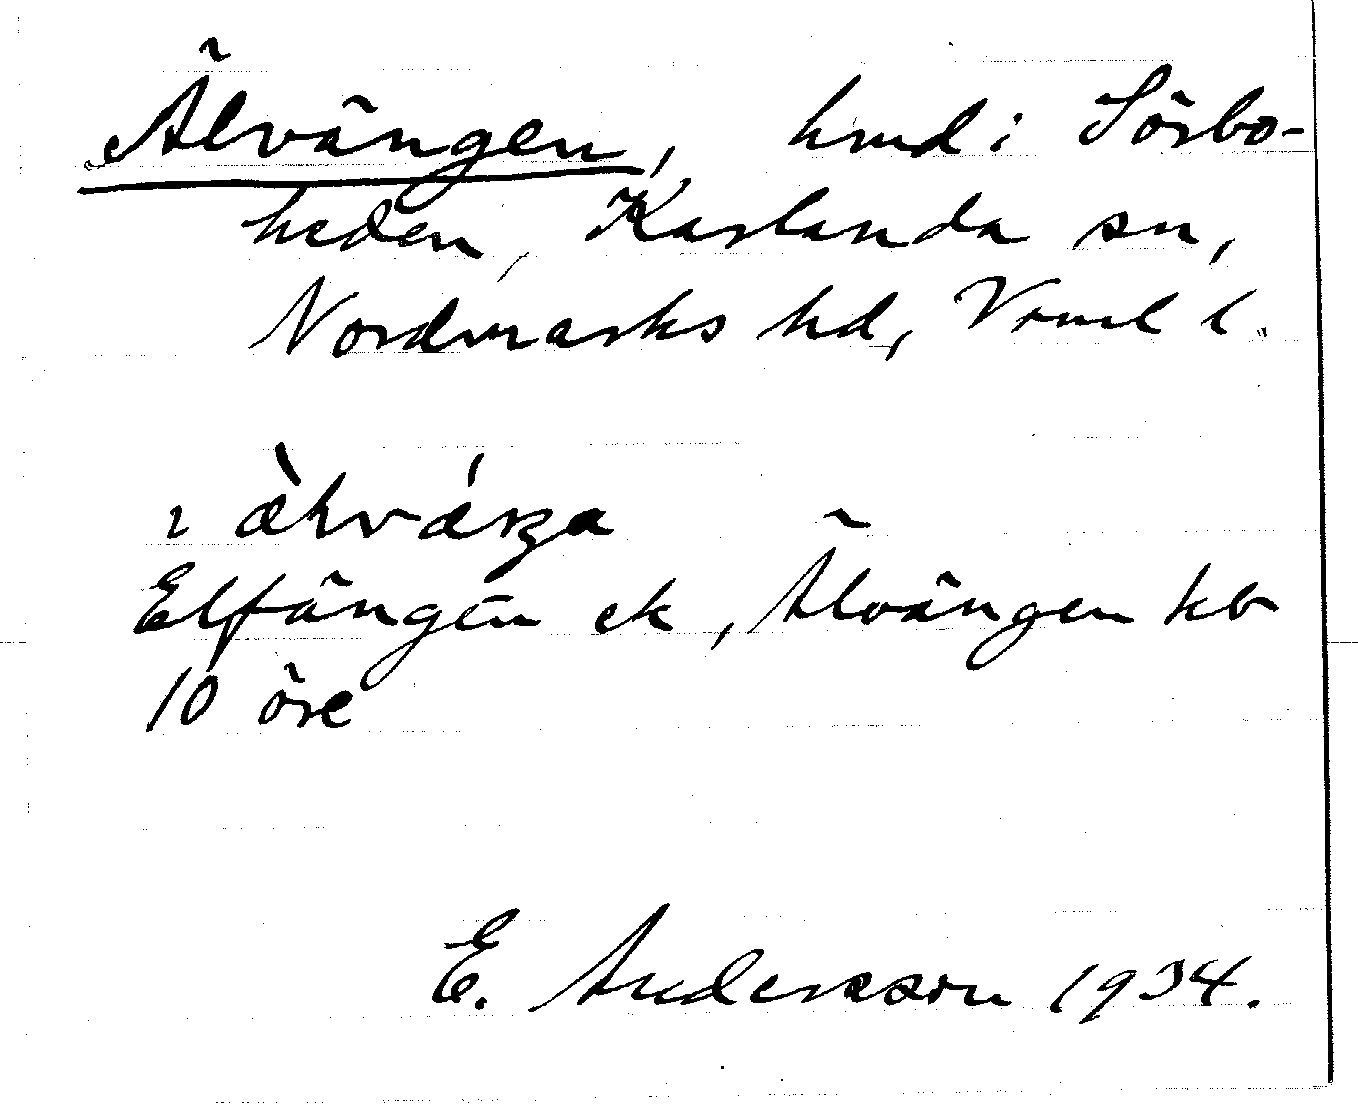 Älvängen, hmd i Sörbo-
heden, Karlanda sn,
Nordmarks hd, Vrml l.
ı æ̀lvǽŋa
Elfängen ek, Älvängen kb
10 öre
E. Andersson 1934.